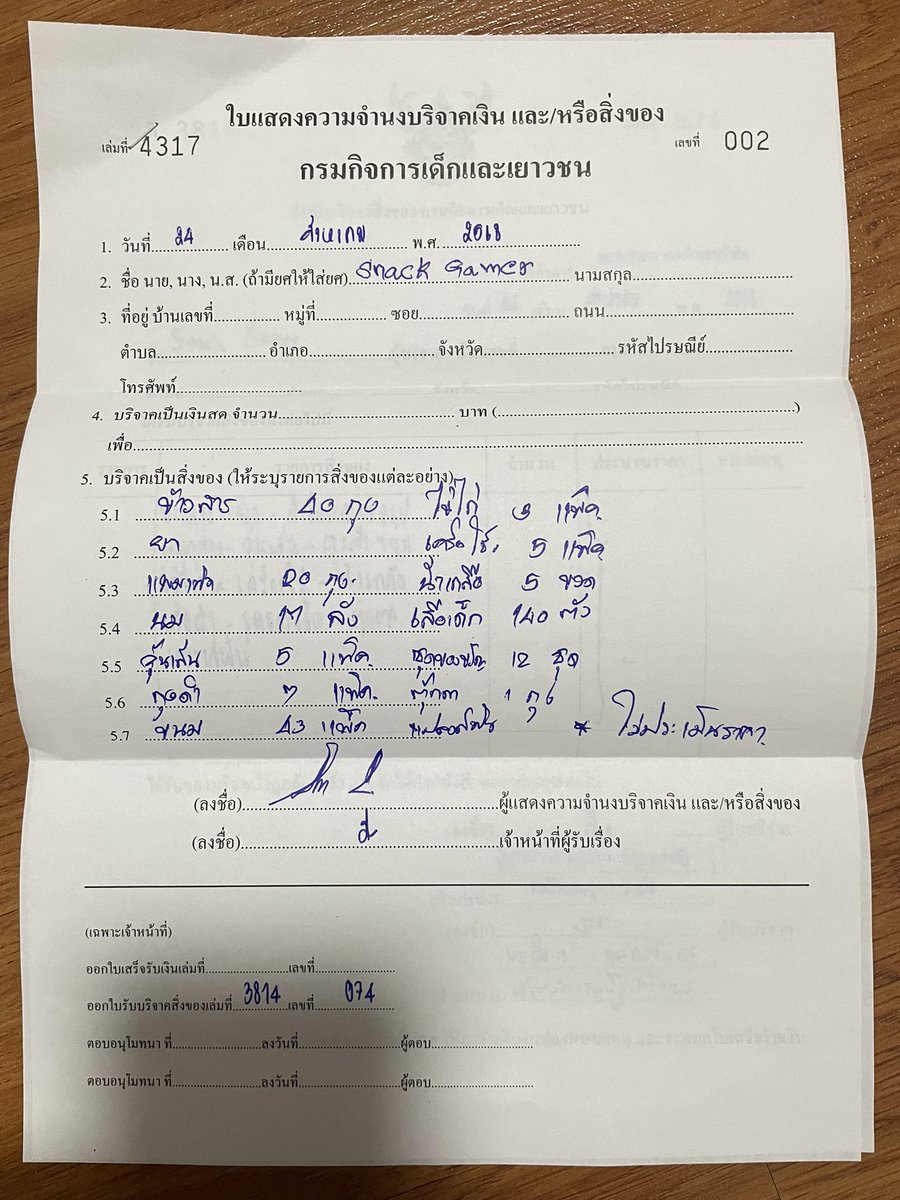 ใบแสดงความจำนงบริจาคเงิน และ/หรือสิ่งของ
เล่มที่ 4317 เลขที่ 002
กรมกิจการเด็กและเยาวชน
1. วันที่ 24 เดือน พ.ศ.
2. ชื่อ นาย, นาง, น.ส. (ถ้ามียศให้ใส่ยศ) Snack Games นามสกุล
3. ที่อยู่ บ้านเลขที่ หมู่ที่ ซอย ถนน
ตำบล อำเภอ จังหวัด รหัสไปรษณีย์
โทรศัพท์
4. บริจาคเป็นเงินสด จำนวน บาท ( )
เพื่อ
5. บริจาคเป็นสิ่งของ (ให้ระบุรายการสิ่งของแต่ละอย่าง)
5.1 ข้าวสาร 40 ถุง ไข่ไก่ 3 แพ็ค
5.2 ยา 5 แพ็ค
5.3 20 ถุง น้ำเกลือ 5 ขวด
5.4 นม 17 ลัง เสื้อเด็ก 140 ตัว
5.5 วุ้นเส้น 5 แพ็ค 12 ชุด
5.6 ถุงดำ 7 แพ็ค ตุ๊กตา 1 ถุง
5.7 ขนม 43 แพ็ค * ไม่ประเมินราคา
(ลงชื่อ) ผู้แสดงความจำนงบริจาคเงิน และ/หรือสิ่งของ
(ลงชื่อ) เจ้าหน้าที่ผู้รับเรื่อง
(เฉพาะเจ้าหน้าที่)
ออกใบเสร็จรับเงินเล่มที่ เลขที่
ออกใบรับบริจาคสิ่งของเล่มที่ 3814 เลขที่ 074
ตอบอนุโมทนา ที่ ลงวันที่ ผู้ตอบ
ตอบอนุโมทนา ที่ ลงวันที่ ผู้ตอบ